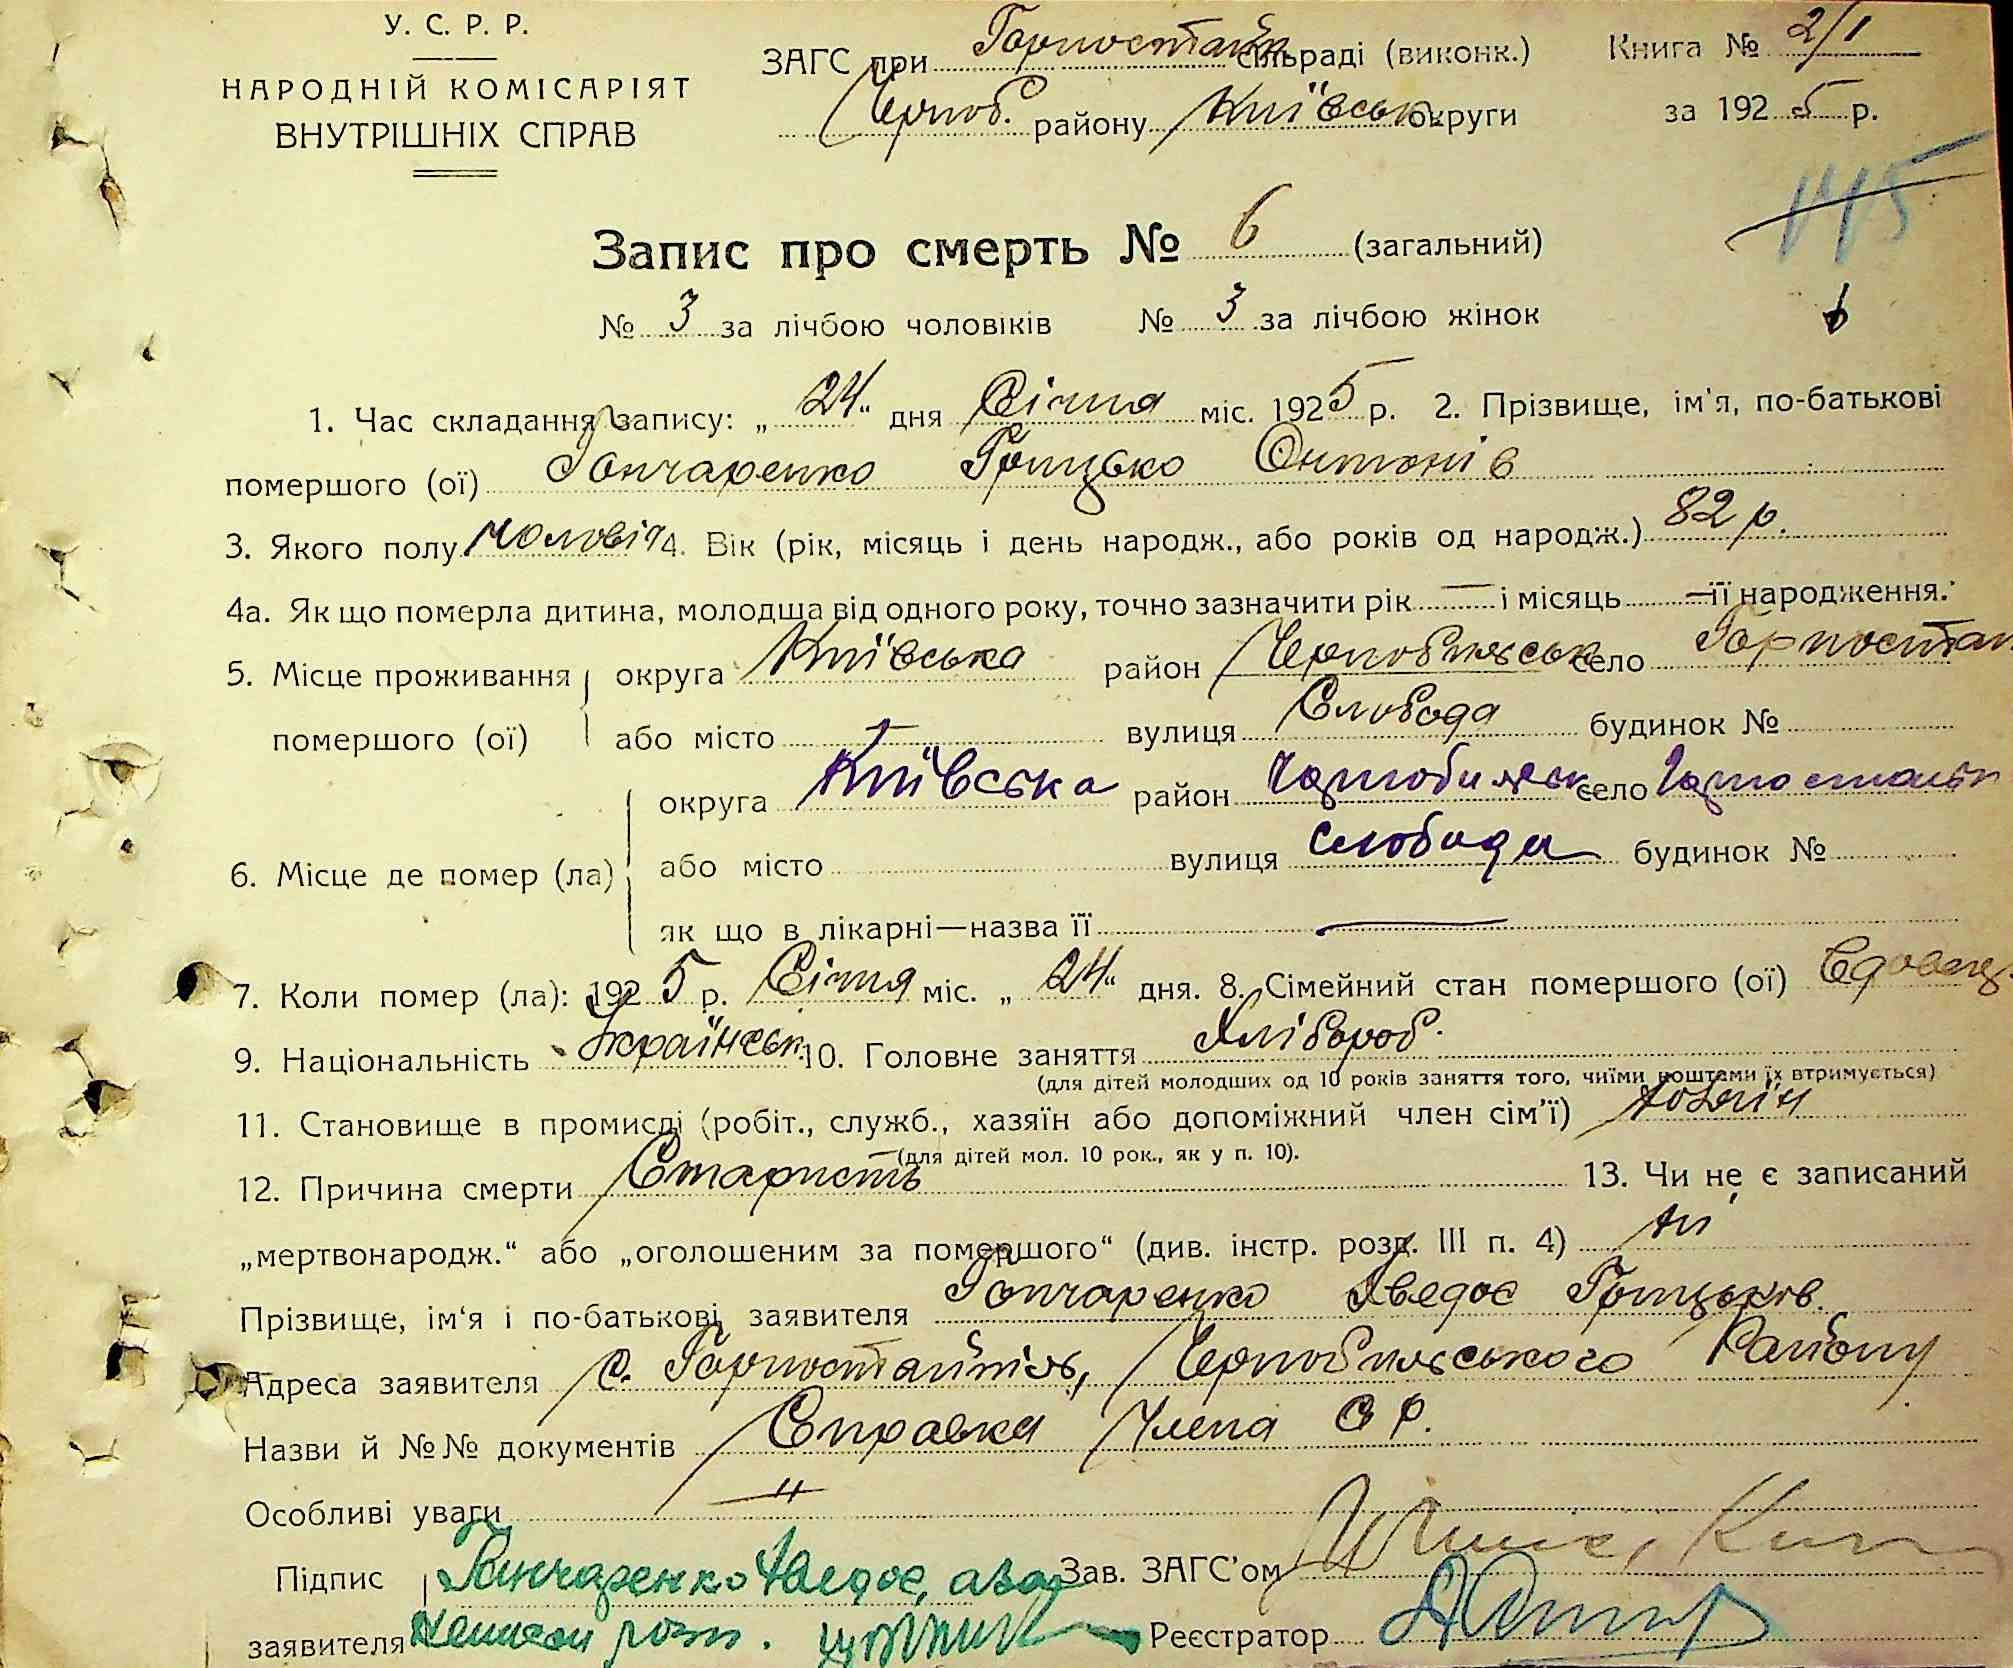 У. С. Р. Р.
НАРОДНІЙ КОМІСАРІЯТ
ВНУТРІШНІХ СПРАВ
ЗАГС при Горностайп сільраді (виконк.) Книга № 2/1
Черноб. району Київськ округи за 1925 р.
145
Запис про смерть № 6 (загальний)
№ 3 за лічбою чоловіків № 3 за лічбою жінок
1. Час складання запису: „24" дня Січня міс. 1925 р. 2. Прізвище, ім'я, по-батькові
помершого (ої) Гончаренко Грицько Онтонів
3. Якого полу чоловіч 4. Вік (рік, місяць і день народж., або років од народж.) 82 р.
4а. Як що померла дитина, молодша від одного року, точно зазначити рік — і місяць — її народження.
5. Місце проживання округа Київська район Чернобильськ село Горностай
помершого (ої) або місто — вулиця Слобода будинок №
округа Київська район Чорнобильськ село Горностайп
6. Місце де помер (ла) або місто вулиця слобода будинок №
як що в лікарні—назва її —
7. Коли помер (ла): 1925 р. Січня міс. „24" дня. 8. Сімейний стан помершого (ої) Вдовець
9. Національність Українськ. 10. Головне заняття Хлібороб.
(для дітей молодших од 10 років заняття того, чиїми коштами їх втримується)
11. Становище в промислі (робіт., служб., хазяїн або допоміжний член сім'ї) Хозяїн
(для дітей мол. 10 рок., як у п. 10).
12. Причина смерти Старисть 13. Чи не є записаний
„мертвонародж." або „оголошеним за помершого" (див. інстр. розд. III п. 4) Ні
Прізвище, ім'я і по-батькові заявителя Гончаренко Явдоє Грицьков.
Адреса заявителя с. Горностайпіль, Чернобильського Району
Назви й №№ документів Справка Члена С Р.
Особливі уваги — " —
Підпис Гончаренко Зав. ЗАГС'ом
заявителя Реєстратор